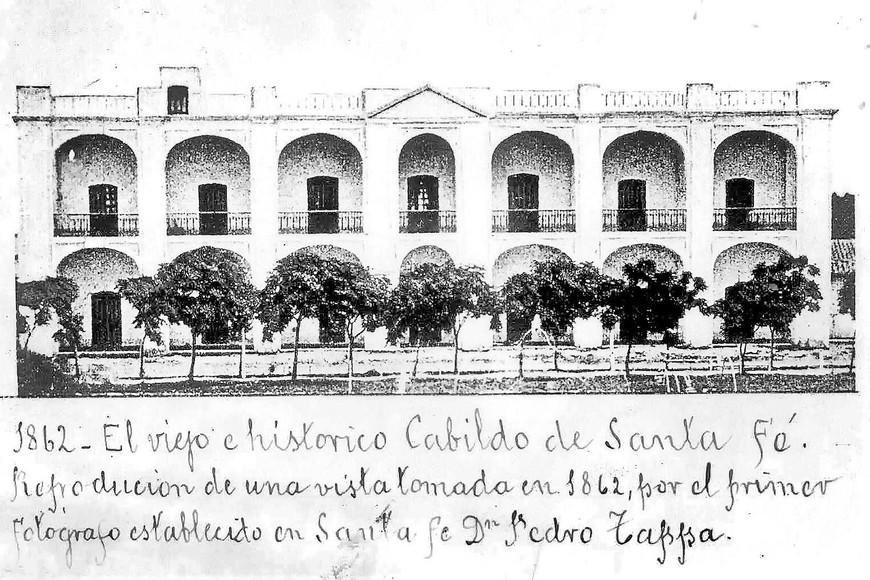 1862 - El viejo e historico Cabildo de Santa Fé.
Reproducion de una vista tomada en 1862, por el primer
fotógrafo establecido en Santa Fe Dn Pedro Tappa.